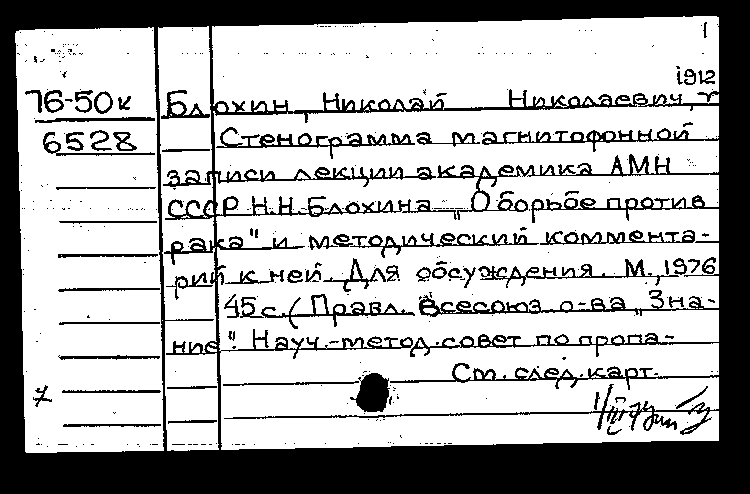 1
1912
76-50к Блохин, Николай Николаевич, г
6528 Стенограмма магнитофонной
записи лекции академика АМН
СССР Н.Н. Блохина „О борьбе против
рака" и методический коммента-
рий к ней. Для обсуждения. М., 1976
45 с. (Правл. Всесоюз. о-ва „Зна-
ние". Науч.-метод. совет по пропа-
См. след. карт.